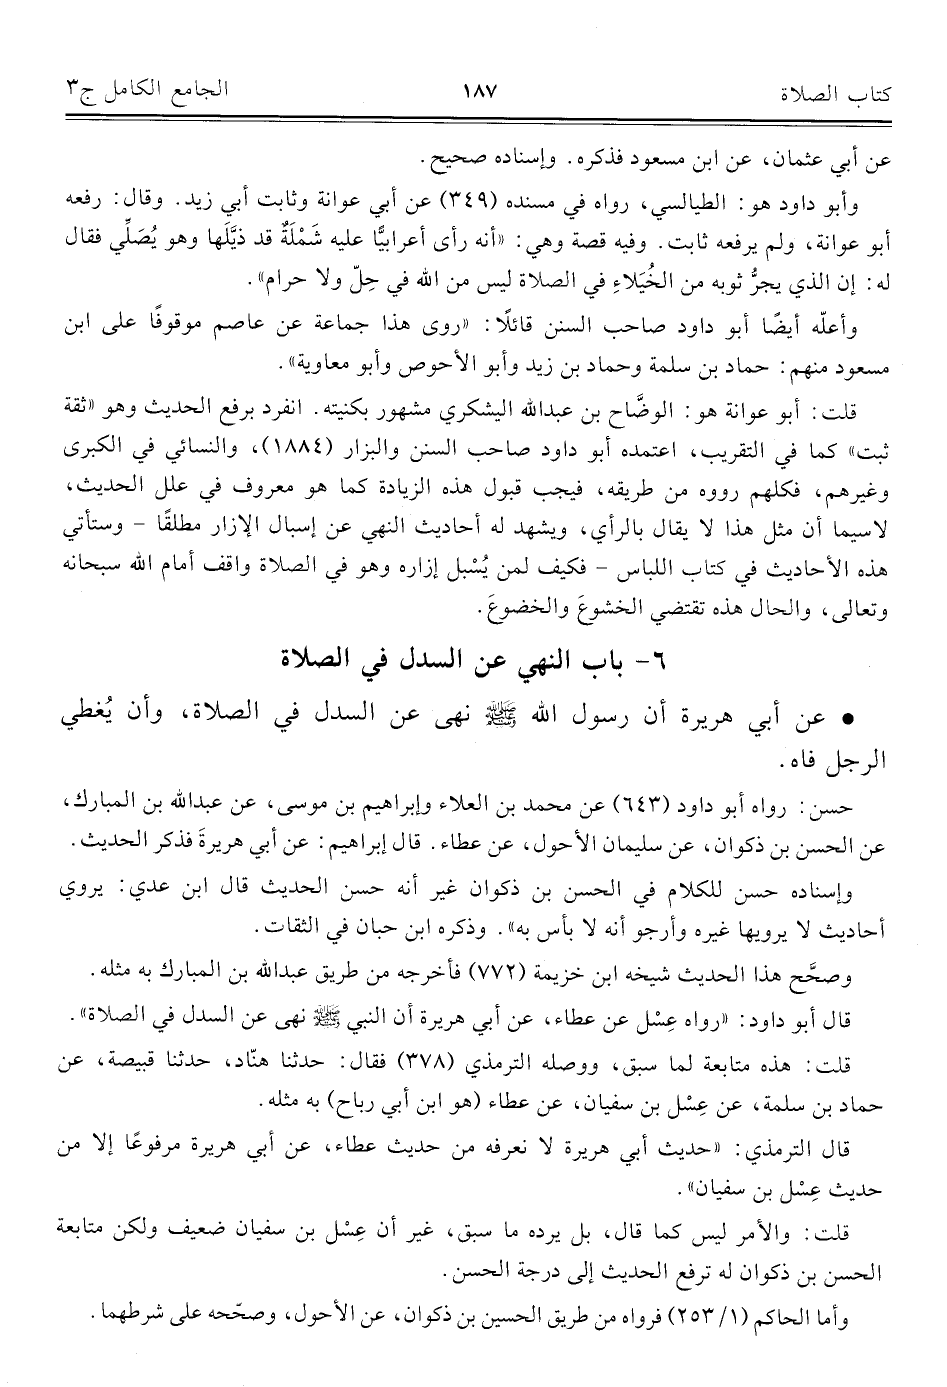 كتاب الصلاة ١٨٧ الجامع الكامل ج٣
عن أبي عثمان، عن ابن مسعود فذكره. وإسناده صحيح.
وأبو داود هو: الطيالسي، رواه في مسنده (٣٤٩) عن أبي عوانة وثابت أبي زيد. وقال: رفعه
أبو عوانة، ولم يرفعه ثابت. وفيه قصة وهي: «أنه رأى أعرابيًّا عليه شَمْلَةٌ قد ذيَّلَها وهو يُصَلِّي فقال
له: إن الذي يجرُّ ثوبه من الخُيَلاءِ في الصلاة ليس من الله في حِلّ ولا حرام».
وأعلّه أيضًا أبو داود صاحب السنن قائلًا: «روى هذا جماعة عن عاصم موقوفًا على ابن
مسعود منهم: حماد بن سلمة وحماد بن زيد وأبو الأحوص وأبو معاوية».
قلت: أبو عوانة هو: الوضَّاح بن عبدالله اليشكري مشهور بكنيته. انفرد برفع الحديث وهو «ثقة
ثبت» كما في التقريب، اعتمده أبو داود صاحب السنن والبزار (١٨٨٤)، والنسائي في الكبرى
وغيرهم، فكلهم رووه من طريقه، فيجب قبول هذه الزيادة كما هو معروف في علل الحديث،
لاسيما أن مثل هذا لا يقال بالرأي، ويشهد له أحاديث النهي عن إسبال الإزار مطلقًا - وستأتي
هذه الأحاديث في كتاب اللباس - فكيف لمن يُسْبل إزاره وهو في الصلاة واقف أمام الله سبحانه
وتعالى، والحال هذه تقتضي الخشوعَ والخضوعَ.
٦- باب النهي عن السدل في الصلاة
• عن أبي هريرة أن رسول الله ﷺ نهى عن السدل في الصلاة، وأن يُغطي
الرجل فاه.
حسن: رواه أبو داود (٦٤٣) عن محمد بن العلاء وإبراهيم بن موسى، عن عبدالله بن المبارك،
عن الحسن بن ذكوان، عن سليمان الأحول، عن عطاء. قال إبراهيم: عن أبي هريرةَ فذكر الحديث.
وإسناده حسن للكلام في الحسن بن ذكوان غير أنه حسن الحديث قال ابن عدي: يروي
أحاديث لا يرويها غيره وأرجو أنه لا بأس به». وذكره ابن حبان في الثقات.
وصحَّح هذا الحديث شيخه ابن خزيمة (٧٧٢) فأخرجه من طريق عبدالله بن المبارك به مثله.
قال أبو داود: «رواه عِسْل عن عطاء، عن أبي هريرة أن النبي ﷺ نهى عن السدل في الصلاة».
قلت: هذه متابعة لما سبق، ووصله الترمذي (٣٧٨) فقال: حدثنا هنّاد، حدثنا قبيصة، عن
حماد بن سلمة، عن عِسْل بن سفيان، عن عطاء (هو ابن أبي رباح) به مثله.
قال الترمذي: «حديث أبي هريرة لا نعرفه من حديث عطاء، عن أبي هريرة مرفوعًا إلا من
حديث عِسْل بن سفيان».
قلت: والأمر ليس كما قال، بل يرده ما سبق، غير أن عِسْل بن سفيان ضعيف ولكن متابعة
الحسن بن ذكوان له ترفع الحديث إلى درجة الحسن.
وأما الحاكم (١/ ٢٥٣) فرواه من طريق الحسين بن ذكوان، عن الأحول، وصحّحه على شرطهما.